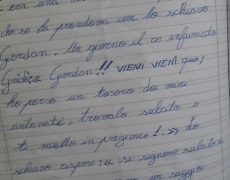 era una
che se la prendeva con lo schiavo
Gordan. Un giorno il re infuriato
Gridò: « Gordan!! VIENI VIENI qua,
ho perso un tesoro dei miei
antenati, trovalo subito o
ti metto in prigione!.»> lo
schiavo rispose: « si signore subito »
un saggio